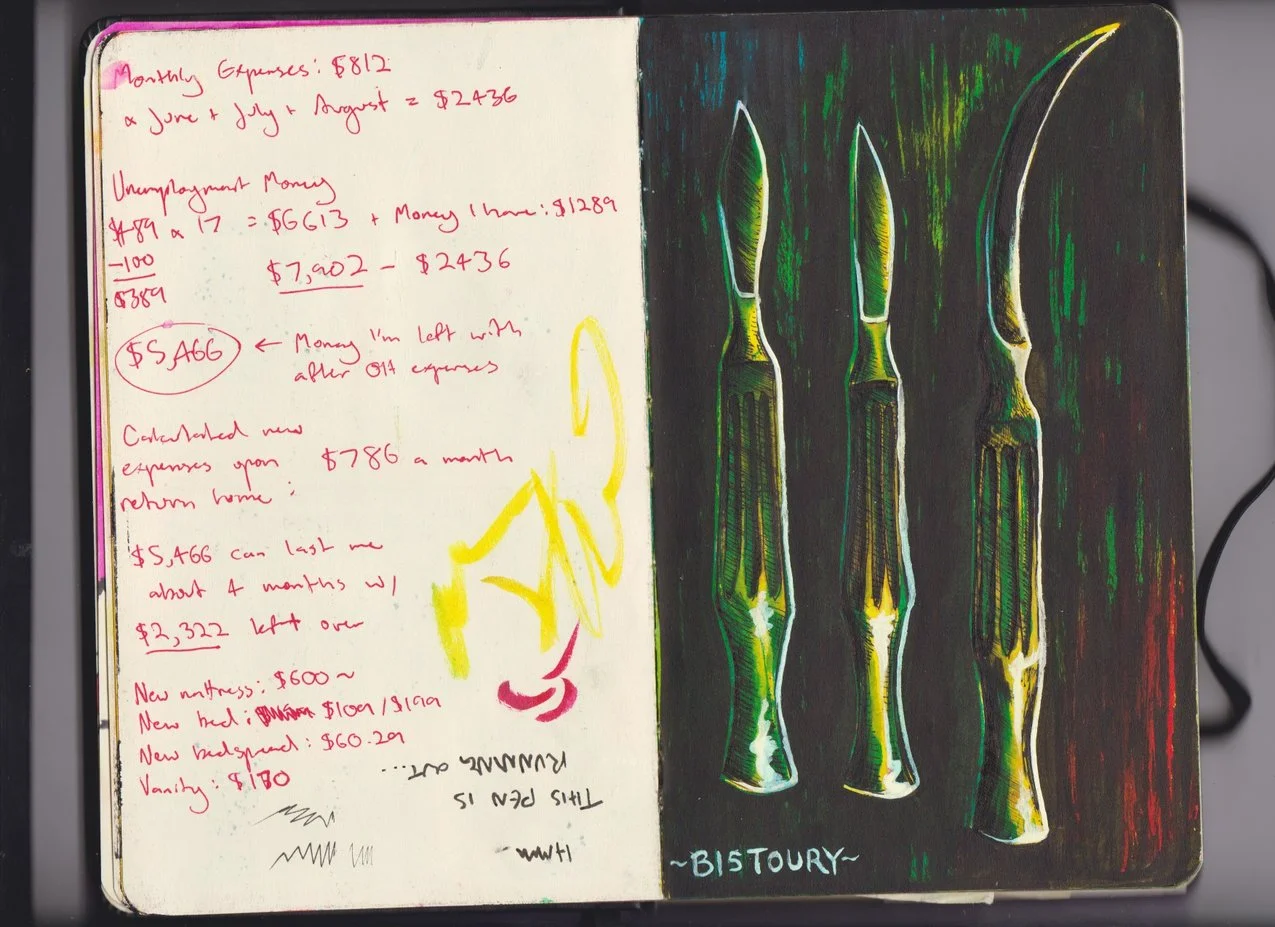 Monthly Expenses: $812
x June + July + August = $2436
Unemployment Money
$489 x 17 = $6613 + Money I have: $1289
-100
$389
$7,902 - $2436
$5,466 ← Money I'm left with
after all expenses
Calculated new
expenses upon $786 a month
return home:
$5,466 can last me
about 4 months w/
$2,322 left over
New mattress: $600~
New bed: $109/$199
New bedspread: $60.29
Vanity: $130
HMM~
THIS PEN IS
RUNNING OUT...
~BISTOURY~